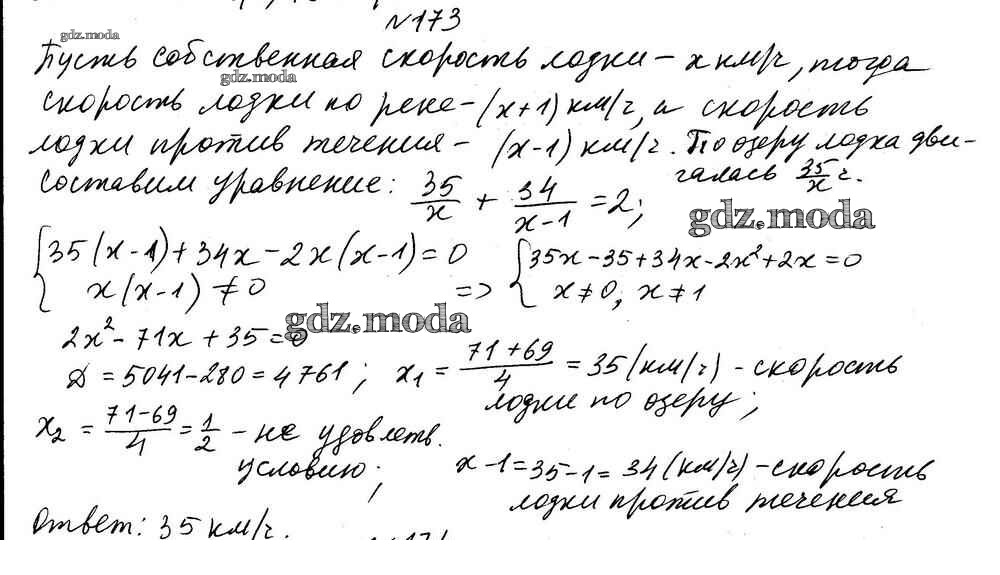 №173
gdz.moda
Пусть собственная скорость лодки – x км/ч, тогда
gdz.moda
скорость лодки по реке – (x+1) км/ч, а скорость
лодки против течения – (x-1) км/ч. По озеру лодка дви-
галась 35/x ч.
Составим уравнение: 35/x + 34/(x-1) = 2;
gdz.moda
{35(x-1)+34x-2x(x-1)=0
x(x-1)≠0 =>
{35x-35+34x-2x²+2x=0
x≠0; x≠1
gdz.moda
2x²-71x+35=0
D=5041-280=4761; x₁=(71+69)/4=35(км/ч) – скорость
лодки по озеру;
x₂=(71-69)/4=1/2 – не удовлетв.
условию;
x-1=35-1=34(км/ч) – скорость
лодки против течения
Ответ: 35 км/ч.